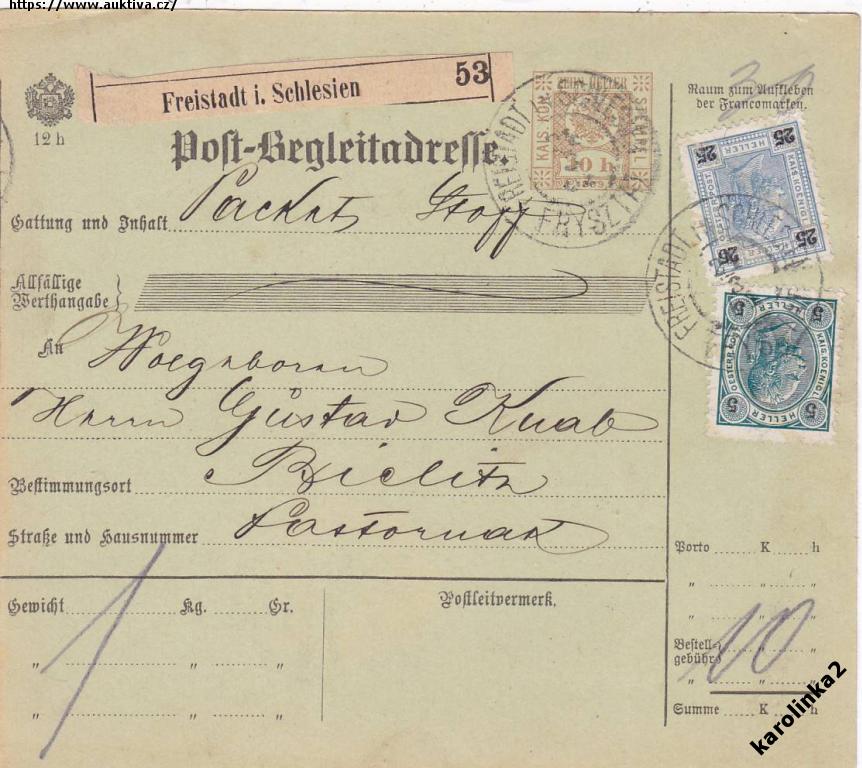 https://www.auktiva.cz/
Freistadt i. Schlesien 53
12 h
ZEHN HELLER
KAIS. KÖN. STEMPEL
10 h
Raum zum Aufkleben
der Francomarken.
Post-Begleitadresse.
Gattung und Inhalt Packet Stoff
FREISTADT
FRYSZT
25 25
HELLER
KAIS. KOENIGL
25 25
Allfällige
Werthangabe
FREISTADT
5 5
HELLER
OESTERR. POST
KAIS. KOENIGL
HELLER
5 5
An Wolgeboren
Herrn Gustav Knab
Bestimmungsort Bielitz
Straße und Hausnummer
Porto K h
" " "
" " "
Gewicht Kg. Gr.
Postleitvermerk.
" " "
" " "
1
Bestell-
gebühr
" " "
10
Summe K h
karolinka2